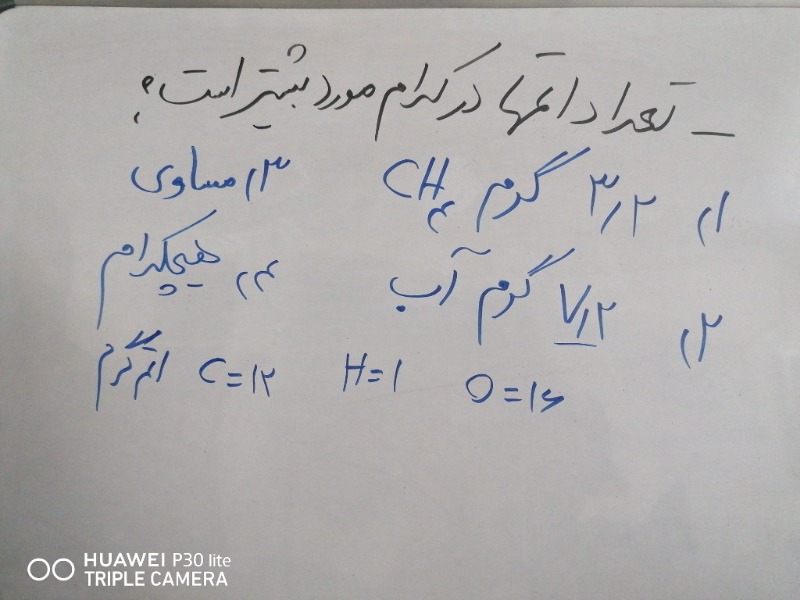 - تعداد اتمها در کدام مورد بیشتر است؟
۱) ۳٫۲ گرم CH۴ ۳) مساوی
۲) ۷٫۲ گرم آب ۴) هیچکدام
O=۱۶ H=۱ C=۱۲ اتم گرم
HUAWEI P30 lite
TRIPLE CAMERA